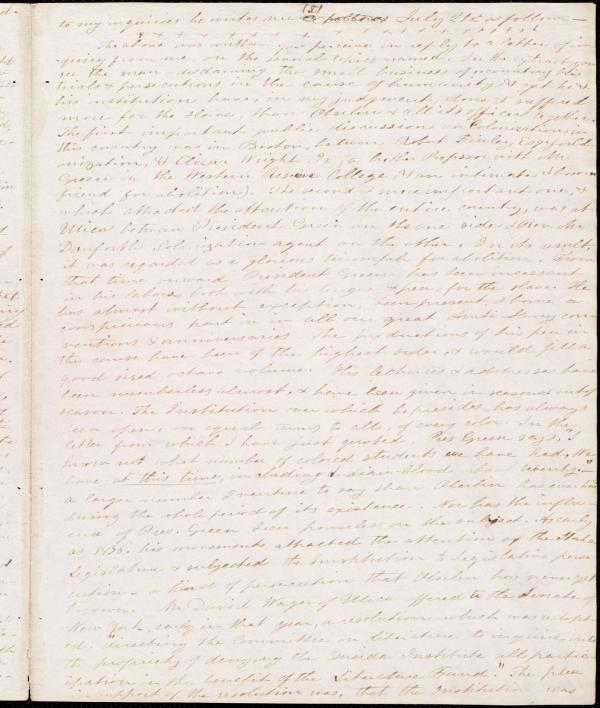 (5)
to my inquiries he writes me as follows July 21st as follows—
The above was written you perceive in reply to a letter of in-
quiry from me, on the several topics named. In the extract you
see the man— disdaining the small business of counting his
trials & persecutions in the cause of humanity, & yet he &
his institution have, in my judgement, done & suffered
more for the slave, than Oberlin & all its officers together.
The first important public discussion on Colonization, in
this country was in Boston, between Robt Finley Esqr for Col-
onization, & Elizur Wright Jr (a brother Professor with Mr
Green in the Western Reserve College, & an intimate & warm
friend for abolition). The second & more important one, &
which attracted the attention of the entire country, was at
Utica between President Green on the one side & Rev Mr
Danforth Colonization agent on the other. In its result,
it was regarded as a glorious triumph for abolition. From
that time onward President Green has been incessant
in his labors both with his tongue & pen, for the slave. He
has almost without exception, been present & borne a
conspicuous part in in all our great Anti Slavery con-
ventions & anniversaries. The productions of his pen in
the cause have been of the highest order, & would fill a
good sized octavo volume. His lectures & addresses have
been numberless almost, & have been given in season & out of
season. The Institution over which he presides, has always
been open, on equal terms to all, of every color. In the
letter from which I have just quoted, Pres Green says, "I
know not what number of colored students we have had. We
have at this time, including Indian blood twenty"
a larger number I venture to say than Oberlin has
during the whole period of its existence. Nor has the influ-
ence of Pres. Green been powerless on the subject. As early
as 1836. his movements attracted the attention of the State
Legislature & subjected the Institution to legislative perse-
cution— a kind of persecution that Oberlin has never yet
known. Mr David Wager of Utica offered to the Senate of
New York, early in that year, a resolution which was adopt-
ed, "directing the Committee on Literature to inquire into
the propriety of denying the Oneida Institute all partic-
ipation in the benefit of the Literature Fund." The plea
in support of the resolution was, that the Institution was